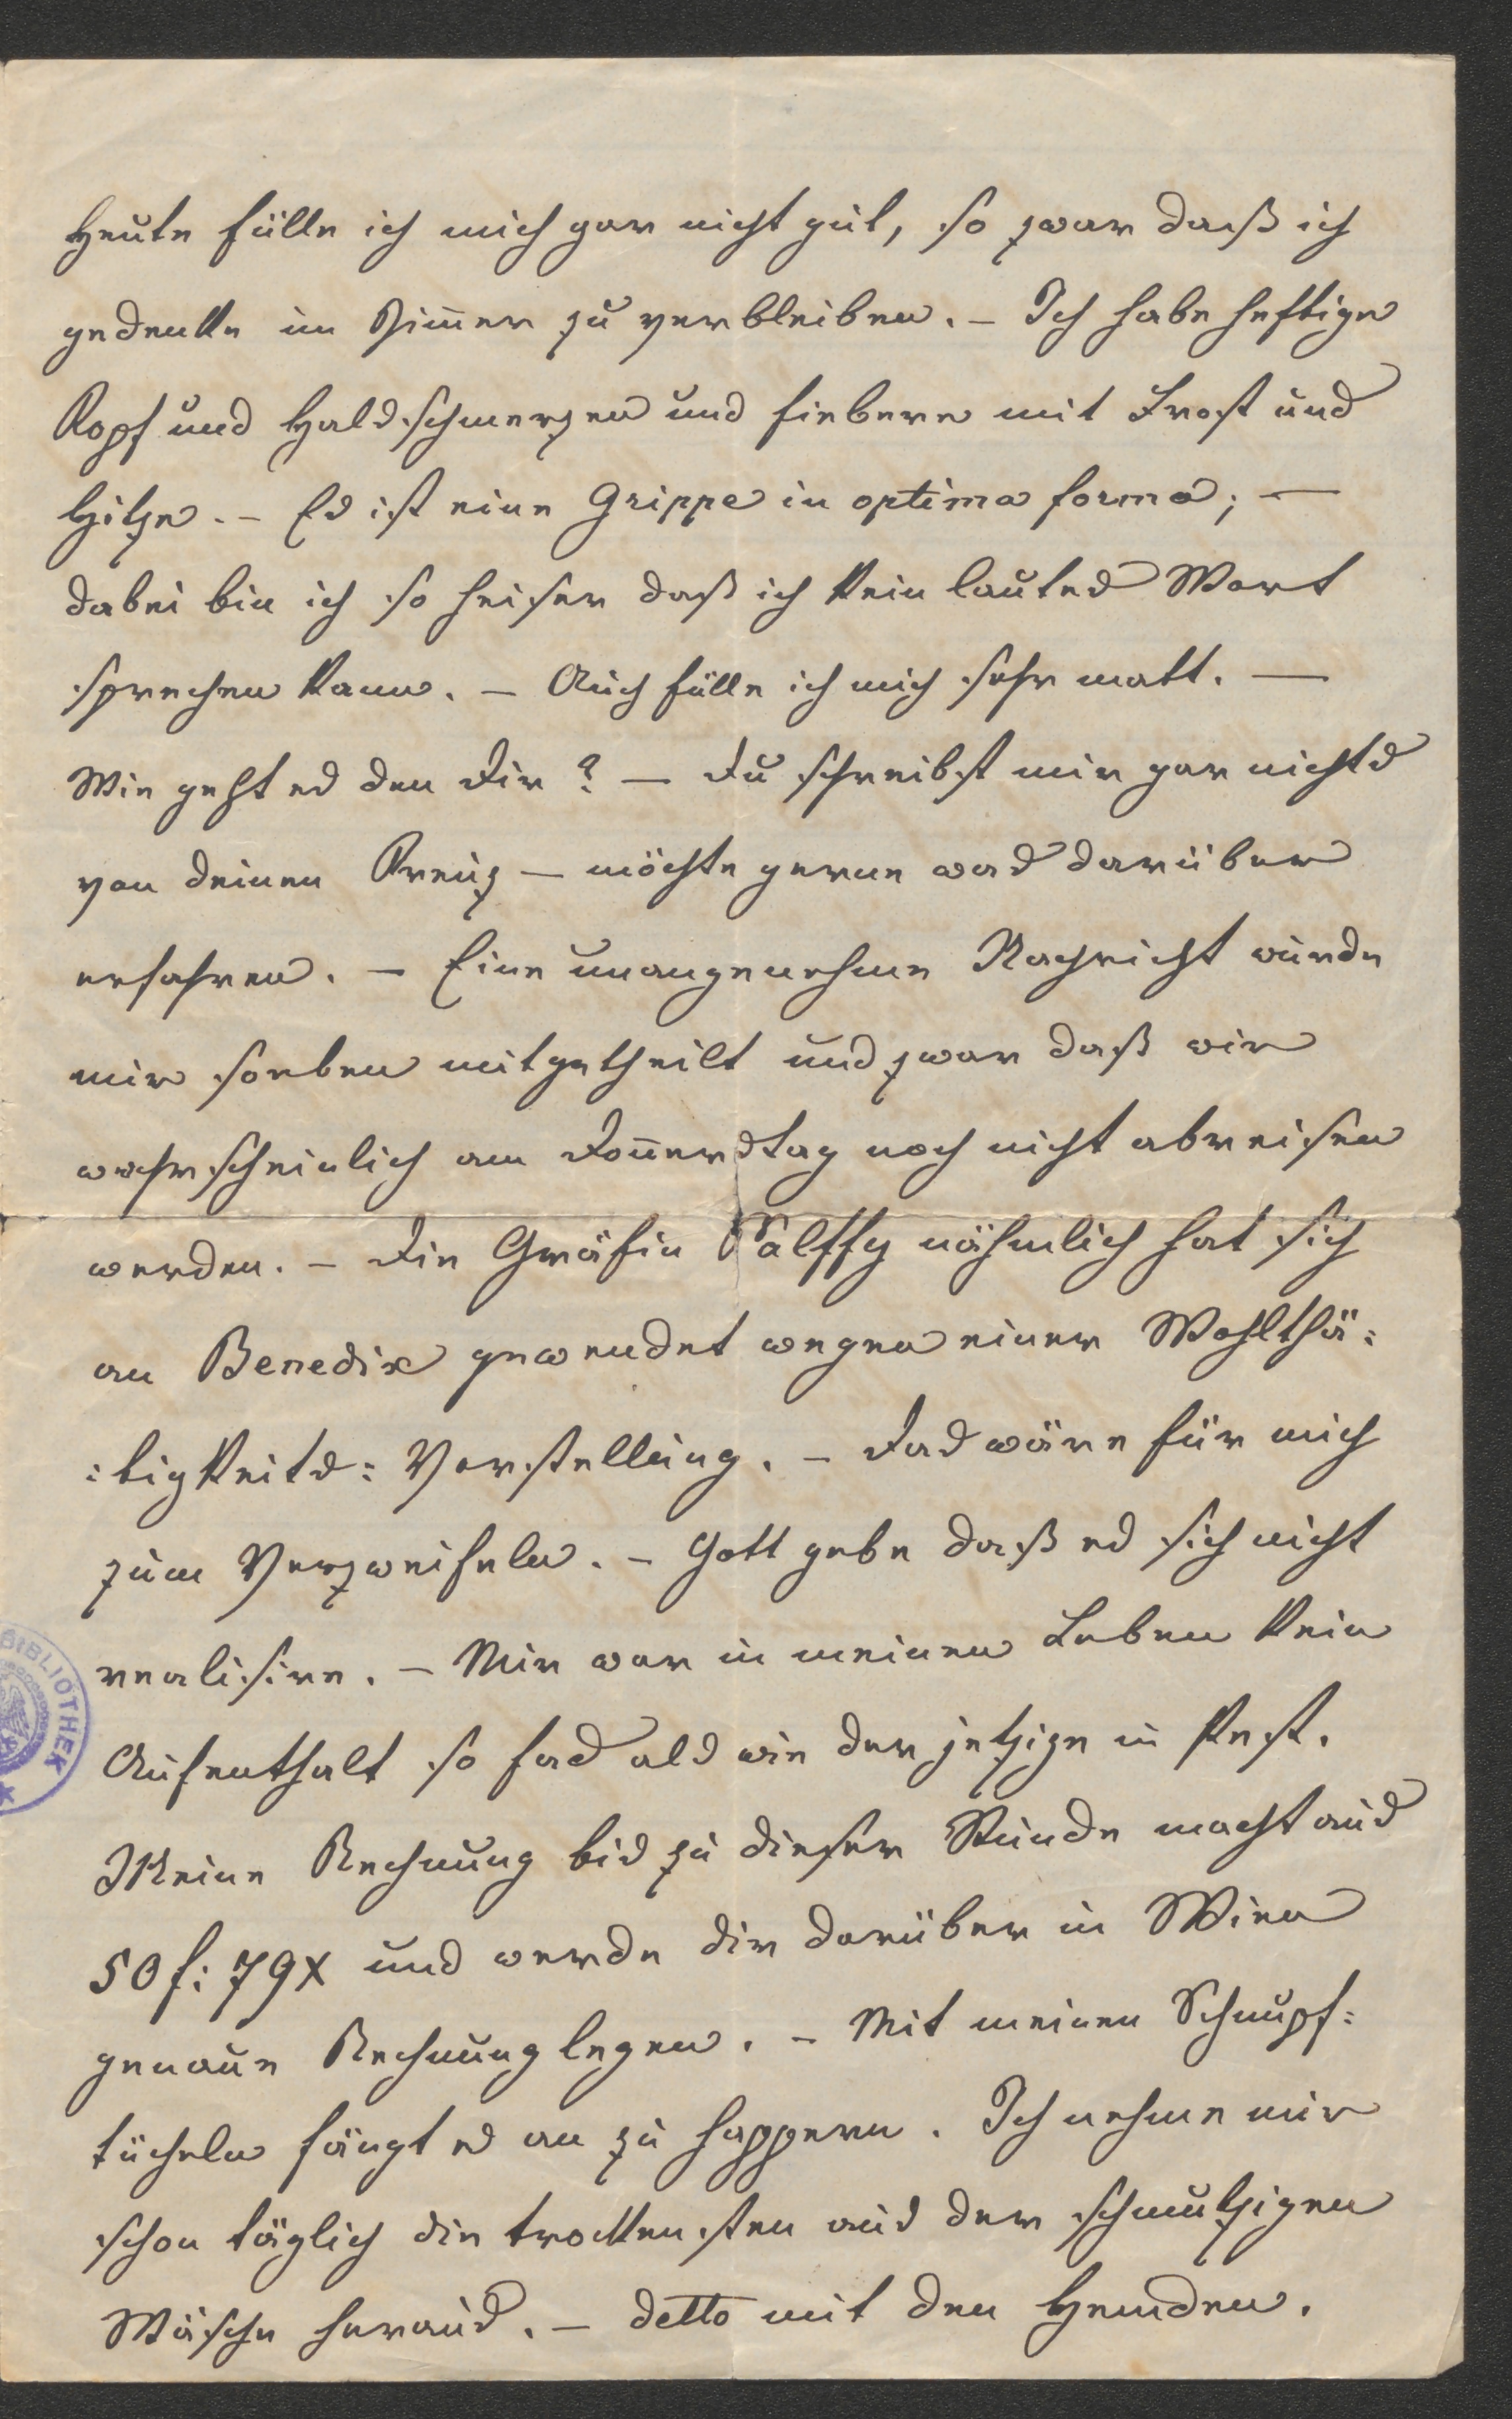 Heute fülle ich mich gar nicht gut, so zwar daß ich
gedenke im Zim̅er zu verbleiben. – Ich habe heftige
Kopf und Halsschmerzen und fiebere mit Frost und
Hitze. – Es ist eine Grippe in optima forma; –
dabei bin ich so heiser daß ich kein lautes Wort
sprechen kann. – Auch fülle ich mich sehr matt. –
Wie geht es den Dir? – Du schreibst mir gar nichts
von deinen Kreuz – möchte gerne was darüber
erfahren. – Eine unangenehme Nachricht wurde
mir soeben mitgetheilt und zwar daß wir
wahrscheinlich am Don̅erstag noch nicht abreisen
werden. – Die Gräfin Palffy nähmlich hat sich
an Benedix gewendet wegen einer Wohlthä:
:tigkeits: Vorstellung. – Das wäre für mich
zum Verzweifeln. – Gott gebe daß es sich nicht
realisire. – Mir war in meinen Leben kein
Aufenthalt so fad als wie der jetzige in Pest.
Meine Rechnung bis zu dieser Stunde macht aus
50 f: 79x und werde dir darüber in Wien
genaue Rechnung legen. – Mit meinen Schnupf:
tücheln fängt es an zu happern. Ich nehme mir
schon täglich die trockensten aus der schmutzigen
Wäsche heraus. – detto mit den Hemden.
BIBLIOTHEK